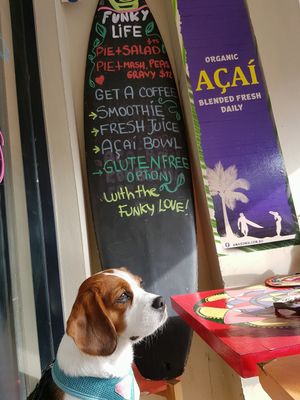 FUNKY
LIFE
PIE + SALAD
PIE + MASH, PEAS
GRAVY $12
GET A COFFEE
SMOOTHIE
FRESH JUICE
AÇAÍ BOWL
GLUTEN FREE
OPTION
with the
FUNKY LOVE!
ORGANIC
AÇAÍ
BLENDED FRESH
DAILY